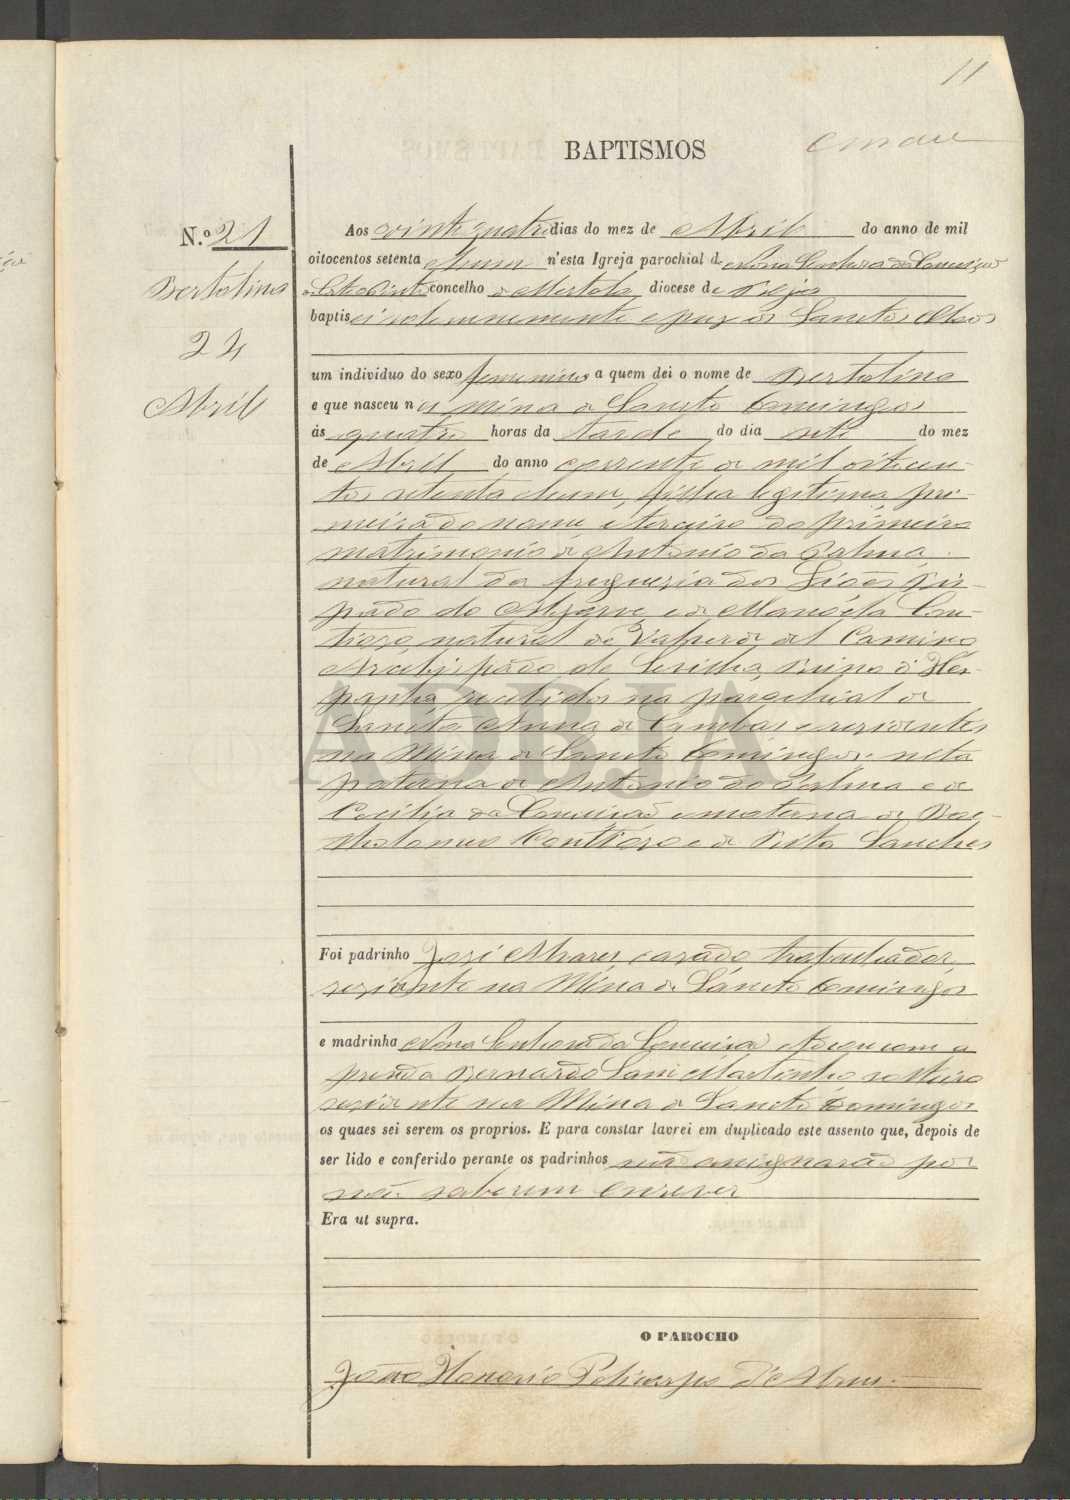 11
BAPTISMOS
N.º 21
Bertolina
24
Abril
Aos vinte quatro dias do mez de Abril do anno de mil
oitocentos setenta ehum n'esta Igreja parochial de Nossa Senhora da Conceiçaõ
concelho de Mertola diocese de Beja
baptisei solemnemente e puz os Sanctos Oleos
um individuo do sexo femenino a quem dei o nome de Bertolina
e que nasceu na Mina de Sancto Domingos
ás quatro horas da tarde do dia sete do mez
de Abril do anno corrente de mil oitocen-
tos setenta ehum, filha legitima, pri-
meira do nome, e terceira do primeiro
matrimonio de Antonio da Palma,
natural da freguezia dos Bis-
pado do Algarve, e de Manoela Con-
natural de del Camino
Arcebispado de Sevilha, Reino d'Hes-
panha, recebidos na parochial de
Sancta Anna de Cambas e residentes
na Mina de Sancto Domingos: neta
paterna de Antonio da Palma e de
Cecilia da Conceiçaõ e materna de Bar-
tholomeu e de Rita Sanches
Foi padrinho José Alvares casado trabalhador,
residente na Mina de Sancto Domingos
e madrinha Nossa Senhora da Conceiçaõ
prenda Bernardo Martinho solteiro
residente na Mina de Sancto Domingos
os quaes sei serem os proprios. E para constar lavrei em duplicado este assento que, depois de
ser lido e conferido perante os padrinhos naõ assignaraõ por
naõ saberem escrever
Era ut supra.
O PAROCHO
João Honorio Policarpo d'Abreu.
ADBJA